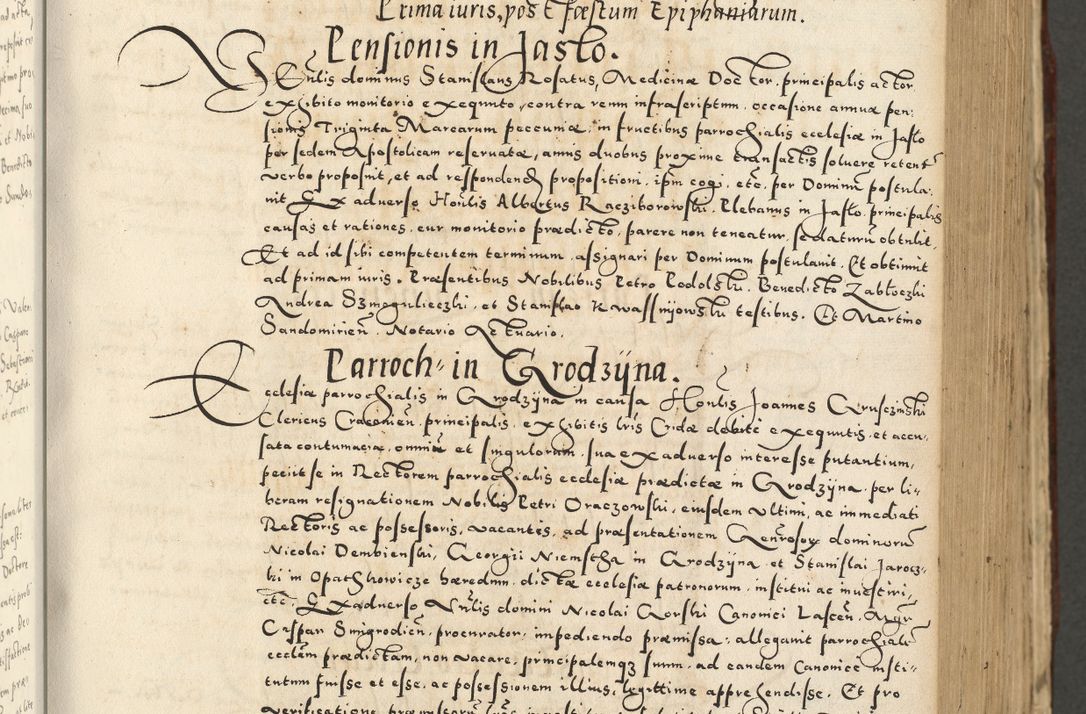 Prima iuris, post festum Epiphaniarum.
Pensionis in Jasło.
Venerlis dominus Stanislaus Rosatus, Medicinæ Doctor, principalis actor
exhibito monitorio exequuto, contra reum infrascriptum, occasione annuæ pen:
sionis Triginta Marcarum peccuniæ, in fructibus parrochialis ecclesiæ in Jasło
per sedem Apostolicam reseruatæ, annis duobus proxime transactis soluere retent
verbo proposuit, et ad respondend propositioni, ipm cogi, etc. per Dominum postula:
uit Ex aduerso Honlis Albertus Racziborowski, Plebanus in Jasło, principalis
causas et rationes, cur monitorio prædicto, parere non teneatur, se daturū obtulit,
Et ad id sibi competentem terminum, assignari per Dominum postulauit, Et obtinuit
ad primam iuris. Præsentibus Nobilibus Petro Podolski, Benedicto Zabłoczki
Andrea Szmogulieczki, et Stanislao Kwassnyowski testibus. Et Martino
Sandomirien, Notario Actuario.
Parroch in Grodzÿna.
Ecclesiæ parrochialis in Grodzÿna in causa Honlis Joannes Gruschinski
Clericus Cracouien, principalis, exhibitis lris Cridæ debite exequutis, et accu,
sata contumacia, omniū et singulorum, sua ex aduerso interesse putantium,
peciit se in Rectorem parrochialis ecclesiæ prædictæ in Grodzÿna, per li-
beram resignationem Nobilis Petri Oraczowski, eiusdem vltimi, ac immediati
Rectoris ac possessoris, vacantis, ad præsentationem Generosorx dominorū
Nicolai Dembienski, Georgii Niemstha in Grodzÿna, et Stanislai Jarocz-
ki in Opathkowicze hæredum, dictæ ecclesiæ patronorum, institui ac inuestiri,
etc. Ex aduerso Vnlis domini Nicolai Gorski Canonici Lascen, Mgr
Caspar Smigrodien, procurator, impediendo præmissa, allegauit parrochiale
ecclam prædictam, non vacare, principalemqz suum, ad eandem Canonice insti-
tutum fuisse et esse, ac possessionem illius, legittime apprehendisse. Et pro